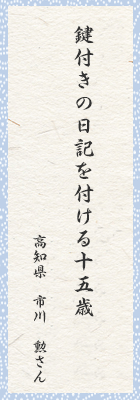 鍵付きの日記を付ける十五歳
高知県 市川 勲さん